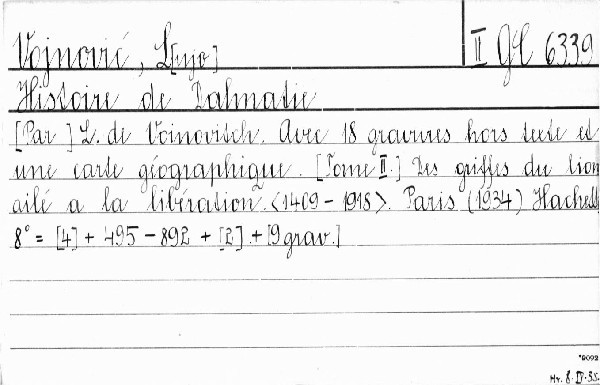 Vojnović, L[ujo] II GC 6339
Histoire de Dalmatie
[Par] L. de Voinovitch. Avec 18 gravures hors texte et
une carte géographique. [Tome II.] Des griffes du lion
ailé a la libération. <1409-1918>. Paris (1934) Hachette
8° = [4] + 495-892 + [2] + [9 grav.]
*9092
Hr. 8.IV.35.